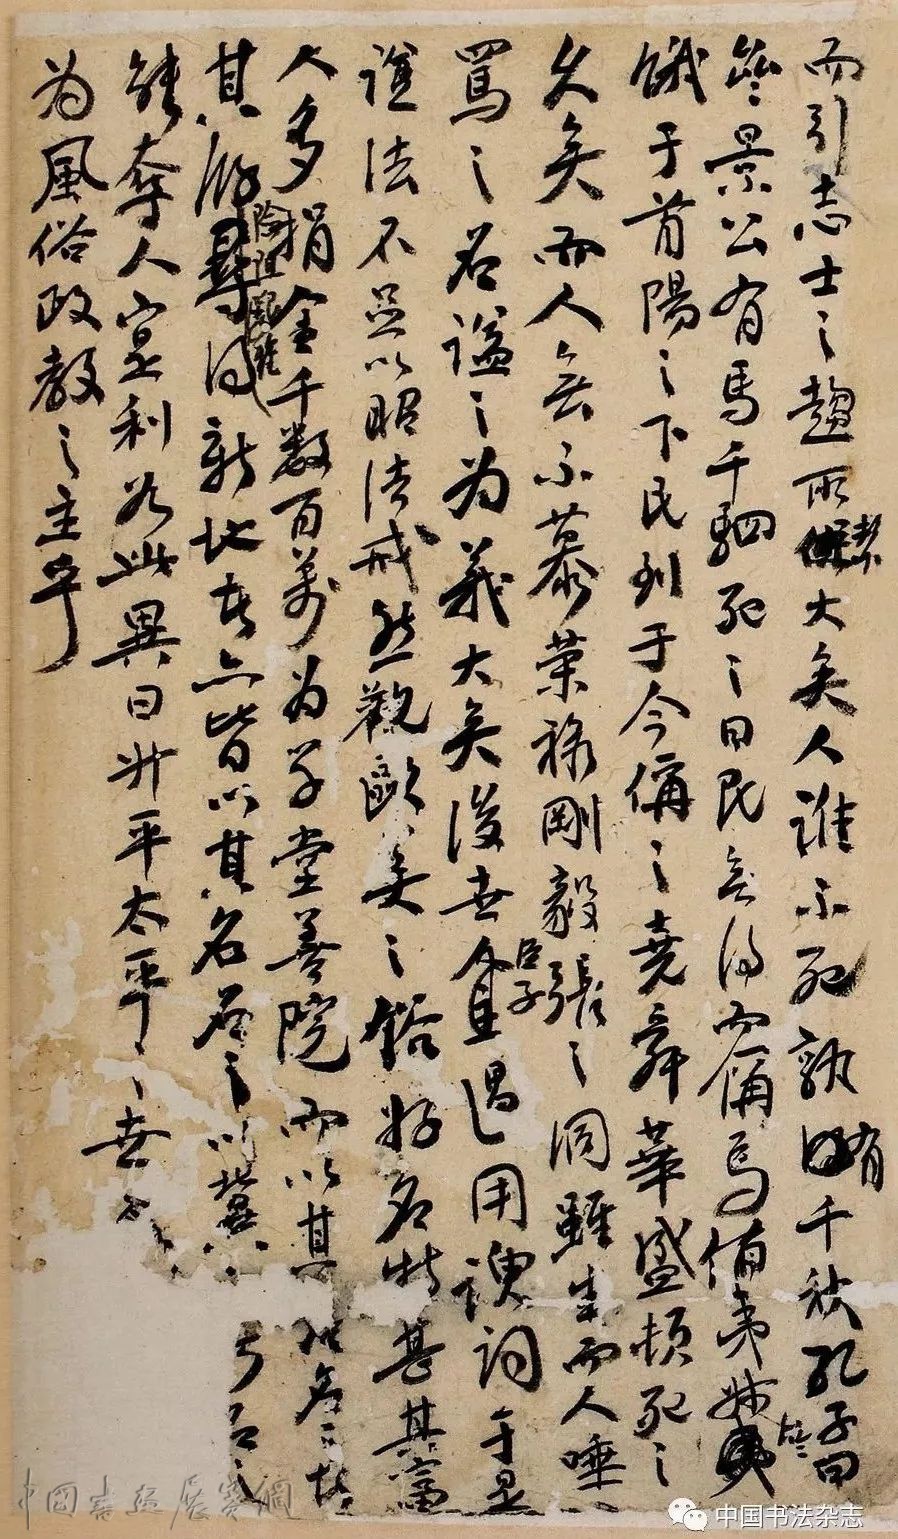 而引志士之趨所繫大矣人誰不死孰有千秋孔子曰
齊景公有馬千駟死之日民無得而稱焉伯夷叔齊
餓于首陽之下民到于今稱之堯舜華盛頓死之
久矣而人無不慕榮祿剛毅張之洞雖生而人唾
罵之名謚之為義大矣後世臣子過用諛詞于是
謚法不足以昭法戒然觀歐美之俗好名特甚其富
人多捐金千數百萬為學堂善院而以其名之
其游險阻尋得新地者亦皆以其名名之以冀
能奪人室利若此異日升平太平之世
為風俗政教之主乎
中国書法展賽網
中国书法杂志